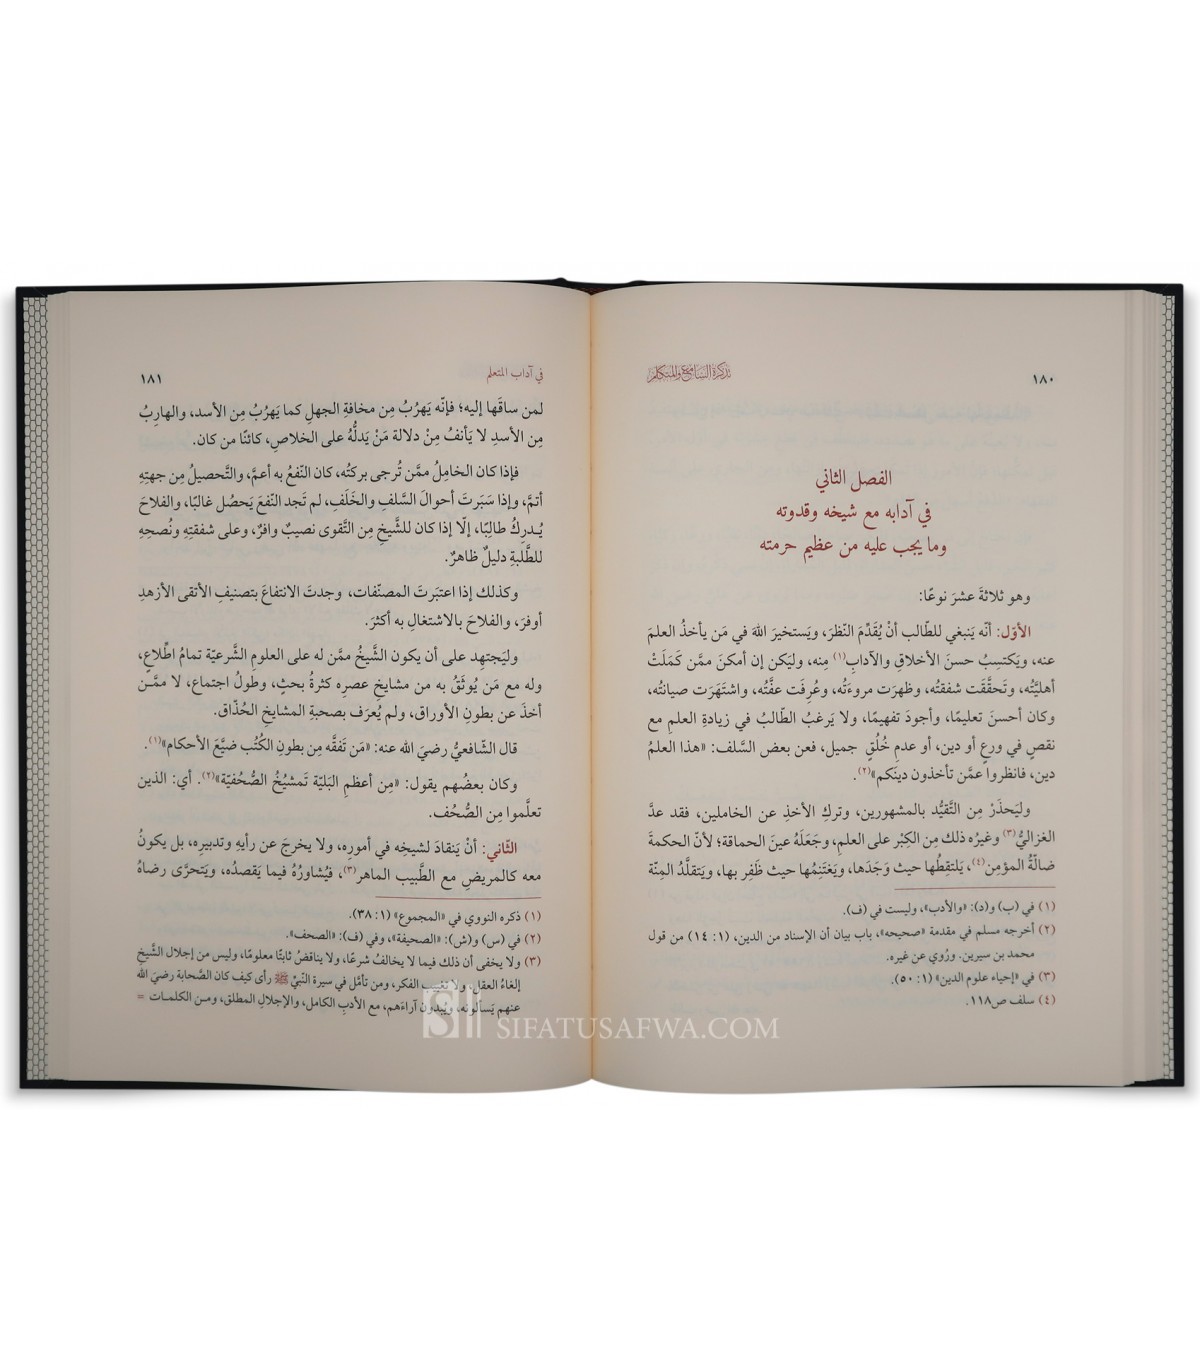 ١٨٠
تذكرة السامع والمتكلم
الفصل الثاني
في آدابه مع شيخه وقدوته
وما يجب عليه من عظيم حرمته
وهو ثلاثةَ عشرَ نوعًا:
الأوّل: أنّه يَنبغي للطّالب أنْ يُقدِّمَ النّظرَ، ويَستخيرَ اللهَ في مَن يأخذُ العلمَ
عنه، ويَكتسِبُ حسنَ الأخلاقِ والآدابِ(١) مِنه، وليَكن إن أمكنَ ممَّن كَمَلَتْ
أهليَّتُه، وتَحقَّقَت شفقتُه، وظهرَت مروءَتُه، وعُرِفَت عفَّتُه، واشتَهَرَت صيانتُه،
وكان أحسنَ تعليمًا، وأجودَ تفهيمًا، ولا يَرغبُ الطّالبُ في زيادةِ العلمِ مع
نقصٍ في ورعٍ أو دين، أو عدمِ خُلُقٍ جميل، فعن بعض السَّلف: «هذا العلمُ
دين، فانظروا عمَّن تأخذون دينَكم»(٢).
وليَحذَرْ مِن التَّقيُّد بالمشهورين، وتركِ الأخذِ عن الخاملين، فقد عدَّ
الغزاليُّ(٣) وغيرُه ذلك مِنَ الكِبْر على العلمِ، وجَعَلَهُ عينَ الحماقة؛ لأنّ الحكمةَ
ضالّةُ المؤمِن(٤)، يَلتقِطُها حيث وَجَدَها، ويَغتَنِمُها حيث ظَفِر بها، ويَتقلَّدُ المِنّة
(١) في (ب) و(د): «والأدب»، وليست في (ف).
(٢) أخرجه مسلم في مقدمة «صحيحه»، باب بيان أن الإسناد من الدين، (١: ١٤) من قول
محمد بن سيرين. ورُوي عن غيره.
(٣) في «إحياء علوم الدين» (١: ٥٠).
(٤) سلف ص١١٨.
في آداب المتعلم
١٨١
لمن ساقَها إليه؛ فإنّه يَهرُبُ مِن مخافةِ الجهلِ كما يَهرُبُ مِن الأسد، والهارِبُ
مِن الأسدِ لا يَأنفُ مِنْ دلالة مَنْ يَدلُّهُ على الخلاصِ، كائنًا من كان.
فإذا كان الخامِلُ ممَّن تُرجى بركتُه، كان النّفعُ به أعمَّ، والتَّحصيلُ مِن جهتِهِ
أتمَّ، وإذا سَبَرَتَ أحوالَ السَّلفِ والخَلَفِ، لم تَجد النّفعَ يَحصُل غالبًا، والفلاحَ
يُـدركُ طالِبًا، إلّا إذا كان للشَّيخِ مِن التَّقوى نصيبٌ وافرٌ، وعلى شفقتِهِ ونُصحِهِ
للطَّلَبةِ دليلٌ ظاهرٌ.
وكذلك إذا اعتبَرتَ المصنّفات، وجدتَ الانتفاعَ بتصنيفِ الأتقى الأزهدِ
أوفرَ، والفلاحَ بالاشتغالِ به أكثرَ.
وليَجتهِد على أن يكون الشَّيخُ ممَّن له على العلومِ الشَّرعيّة تمامُ اطّلاعٍ،
وله مع مَن يُوثَقُ به من مشايخِ عصرِه كثرةُ بحثٍ، وطولُ اجتماع، لا ممَّـن
أخذَ عن بطونِ الأوراق، ولم يُعرَف بصحبةِ المشايخِ الحُذّاق.
قال الشّافعيُّ رضيَ الله عنه: «مَن تَفقَّه مِن بطونِ الكُتُب ضيَّعَ الأحكام»(١).
وكان بعضُهم يقول: «مِن أعظمِ البَليّة تَمشيُخُ الصُّحُفيّة»(٢). أي: الذين
تعلَّموا مِن الصُّحُف.
الثّاني: أنْ يَنقادَ لشيخِه في أمورِه، ولا يخرجَ عن رأيهِ وتدبيرِه، بل يكونُ
معه كالمريضِ مع الطَّبيبِ الماهر(٣)، فيُشاورُهُ فيما يَقصدُه، ويَتحرَّى رضاهُ
(١) ذكره النووي في «المجموع» (١: ٣٨).
(٢) في (س) و(ش): «الصحيفة»، وفي (ف): «الصحف».
(٣) ولا يخفى أن ذلك فيما لا يخالفُ شرعًا، ولا يناقضُ ثابتًا معلومًا، وليس من إجلال الشَّيخِ
إلغاءُ العقل، ولا تغييب الفكر، ومن تأمَّل في سيرة النبيِّ ﷺ رأى كيف كان الصَّحابة رضيَ الله
عنهم يَسألونَه، ويُبدون آراءَهم، مع الأدبِ الكامل، والإجلالِ المطلق، ومـن الكلمـات =
SIFATUSAFWA.COM